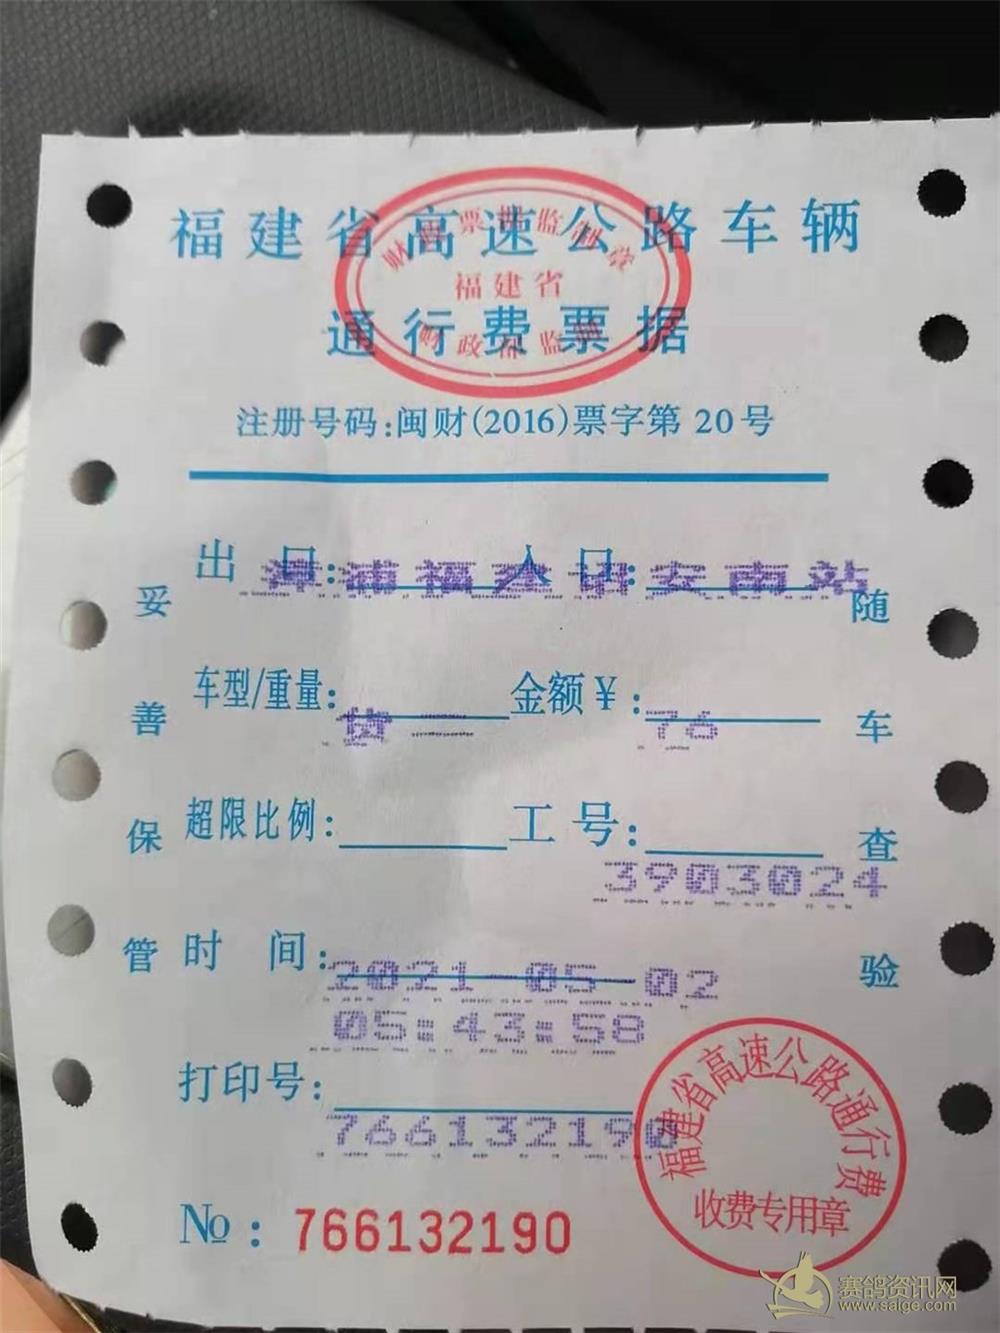 福建省高速公路车辆
通行费票据
福建省
注册号码:闽财(2016)票字第 20号
出 口: 漳浦 入 口: 福建诏安南站
车型/重量: 货一 金额¥: 76
超限比例: 工 号: 3903024
时 间: 2021-05-02
05:43:58
打印号: 766132190
№: 766132190
妥善保管
随车查验
福建省高速公路通行费
收费专用章
赛鸽资讯网
www.saige.com